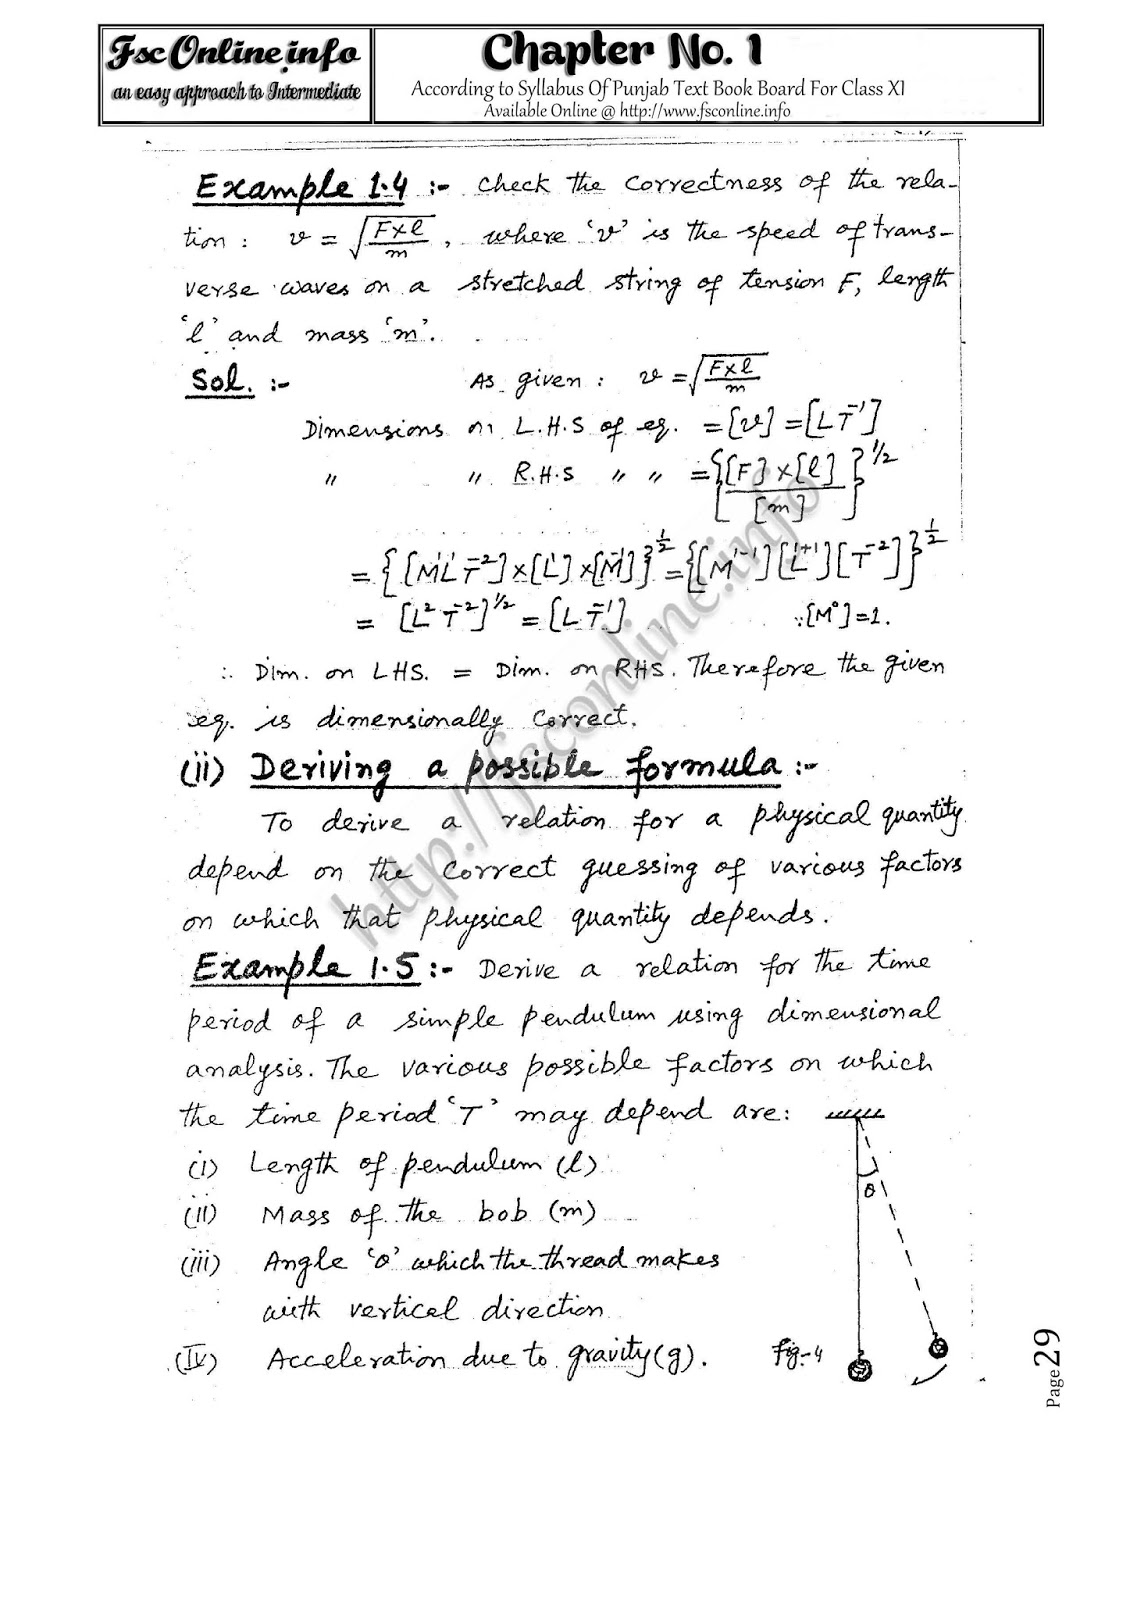 Fsc Online.info
an easy approach to Intermediate
Chapter No. 1
According to Syllabus Of Punjab Text Book Board For Class XI
Available Online @ http://www.fsconline.info
Example 1.4 :- Check the correctness of the rela-
tion : v = √(F×l/m) , where 'v' is the speed of trans-
verse waves on a stretched string of tension F, length
'l' and mass 'm'.
Sol. :- As given : v = √(F×l/m)
Dimensions on L.H.S of eq. = [v] = [LT⁻¹]
" " R.H.S " " = {[F]×[l]/[m]}^1/2
= {[M¹L¹T⁻²]×[L¹]×[M⁻¹]}^1/2 = {[M¹⁻¹][L¹⁺¹][T⁻²]}^1/2
= [L²T⁻²]^1/2 = [LT⁻¹]. ∵[M°]=1.
∴ Dim. on LHS. = Dim. on RHS. Therefore the given
eq. is dimensionally correct.
(ii) Deriving a possible formula :-
To derive a relation for a physical quantity
depend on the correct guessing of various factors
on which that physical quantity depends.
Example 1.5 :- Derive a relation for the time
period of a simple pendulum using dimensional
analysis. The various possible factors on which
the time period 'T' may depend are:
(i) Length of pendulum (l)
(ii) Mass of the bob (m)
(iii) Angle 'θ' which the thread makes
with vertical direction
(iv) Acceleration due to gravity (g).
θ
Fig-4
Page 29
http://fsconline.info